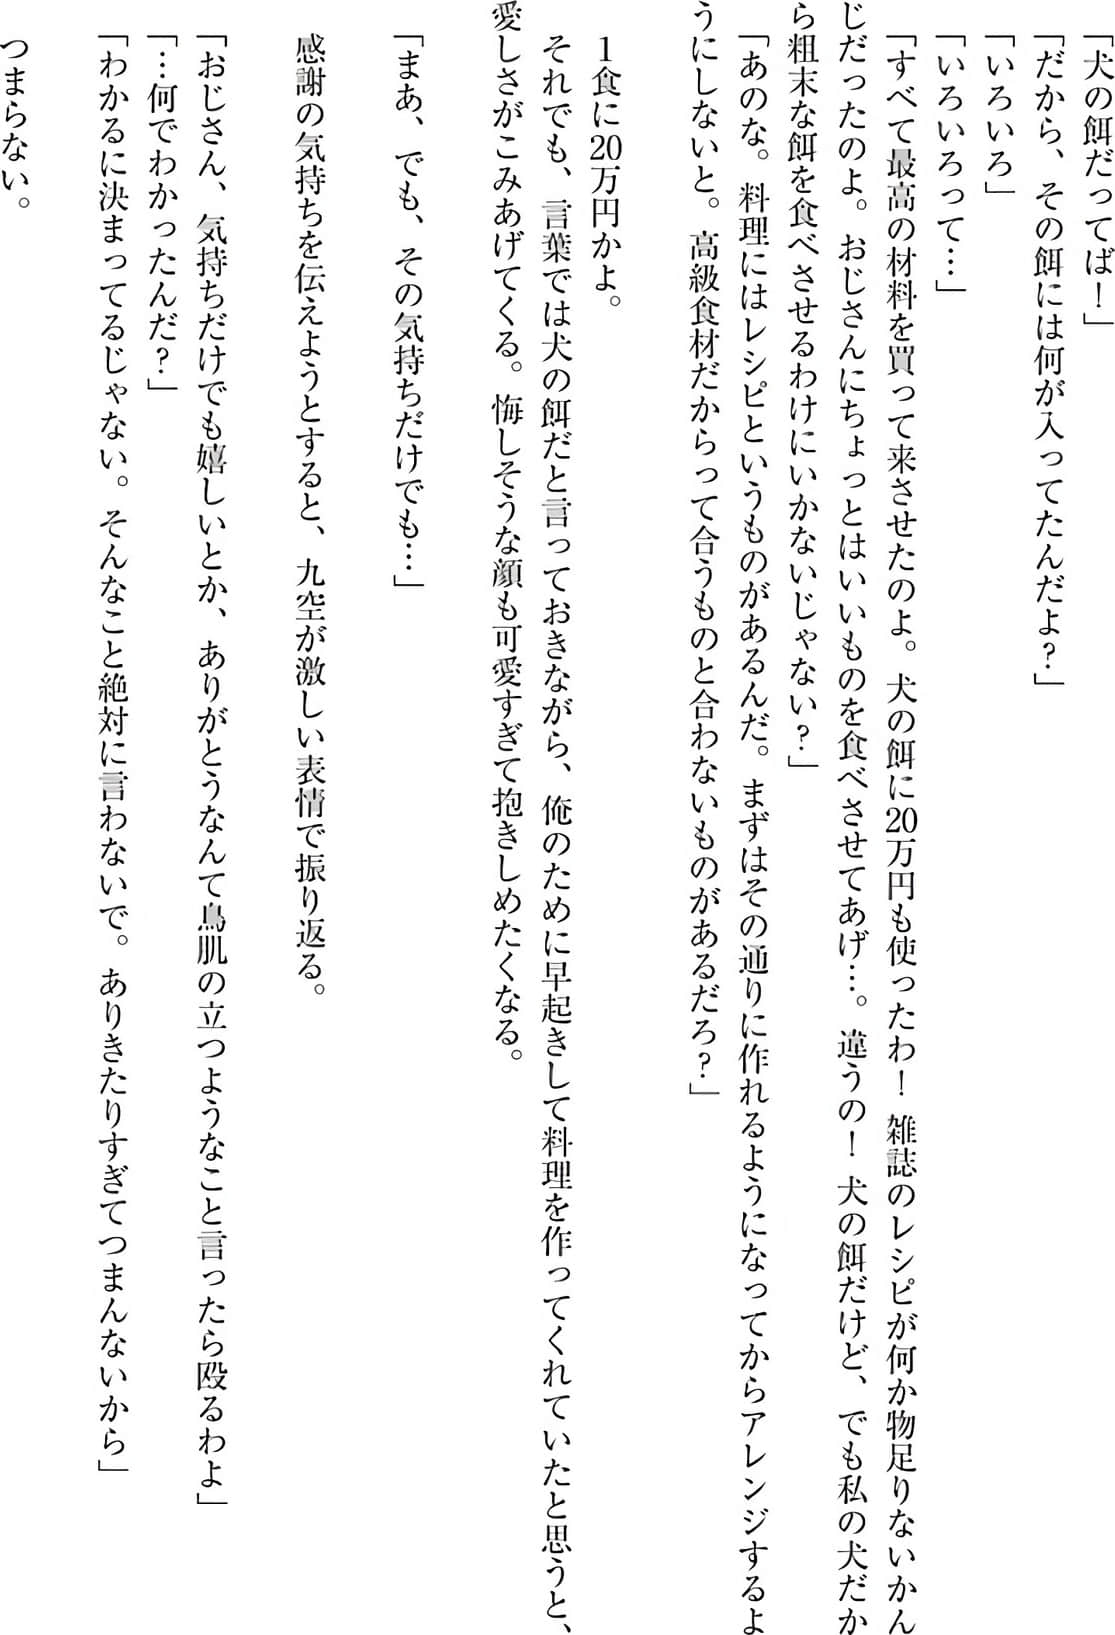 「犬の餌だってば！」
「だから、その餌には何が入ってたんだよ？」
「いろいろ」
「いろいろって…」
「すべて最高の材料を買って来させたのよ。犬の餌に20万円も使ったわ！　雑誌のレシピが何か物足りないかん
じだったのよ。おじさんにちょっとはいいものを食べさせてあげ…。違うの！　犬の餌だけど、でも私の犬だか
ら粗末な餌を食べさせるわけにいかないじゃない？」
「あのな。料理にはレシピというものがあるんだ。まずはその通りに作れるようになってからアレンジするよ
うにしないと。高級食材だからって合うものと合わないものがあるだろ？」
1食に20万円かよ。
それでも、言葉では犬の餌だと言っておきながら、俺のために早起きして料理を作ってくれていたと思うと、
愛しさがこみあげてくる。悔しそうな顔も可愛すぎて抱きしめたくなる。
「まあ、でも、その気持ちだけでも…」
感謝の気持ちを伝えようとすると、九空が激しい表情で振り返る。
「おじさん、気持ちだけでも嬉しいとか、ありがとうなんて鳥肌の立つようなこと言ったら殴るわよ」
「…何でわかったんだ？」
「わかるに決まってるじゃない。そんなこと絶対に言わないで。ありきたりすぎてつまんないから」
つまらない。